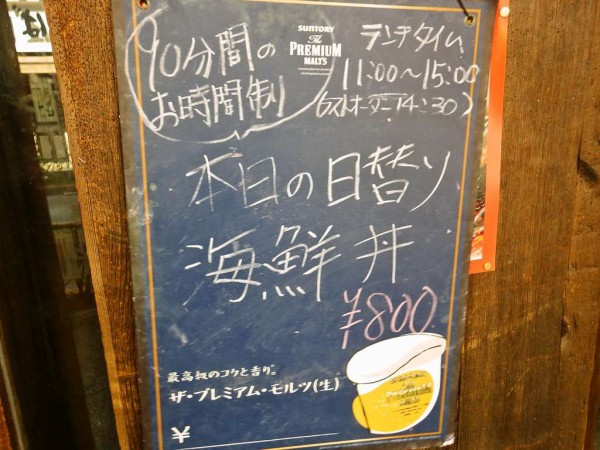 90分間の
お時間制
SUNTORY
The
PREMIUM
MALT'S
ランチタイム
11:00〜15:00
(ラストオーダー14:30)
本日の日替り
海鮮丼
¥800
最高級のコクと香り。
ザ・プレミアム・モルツ(生)
¥